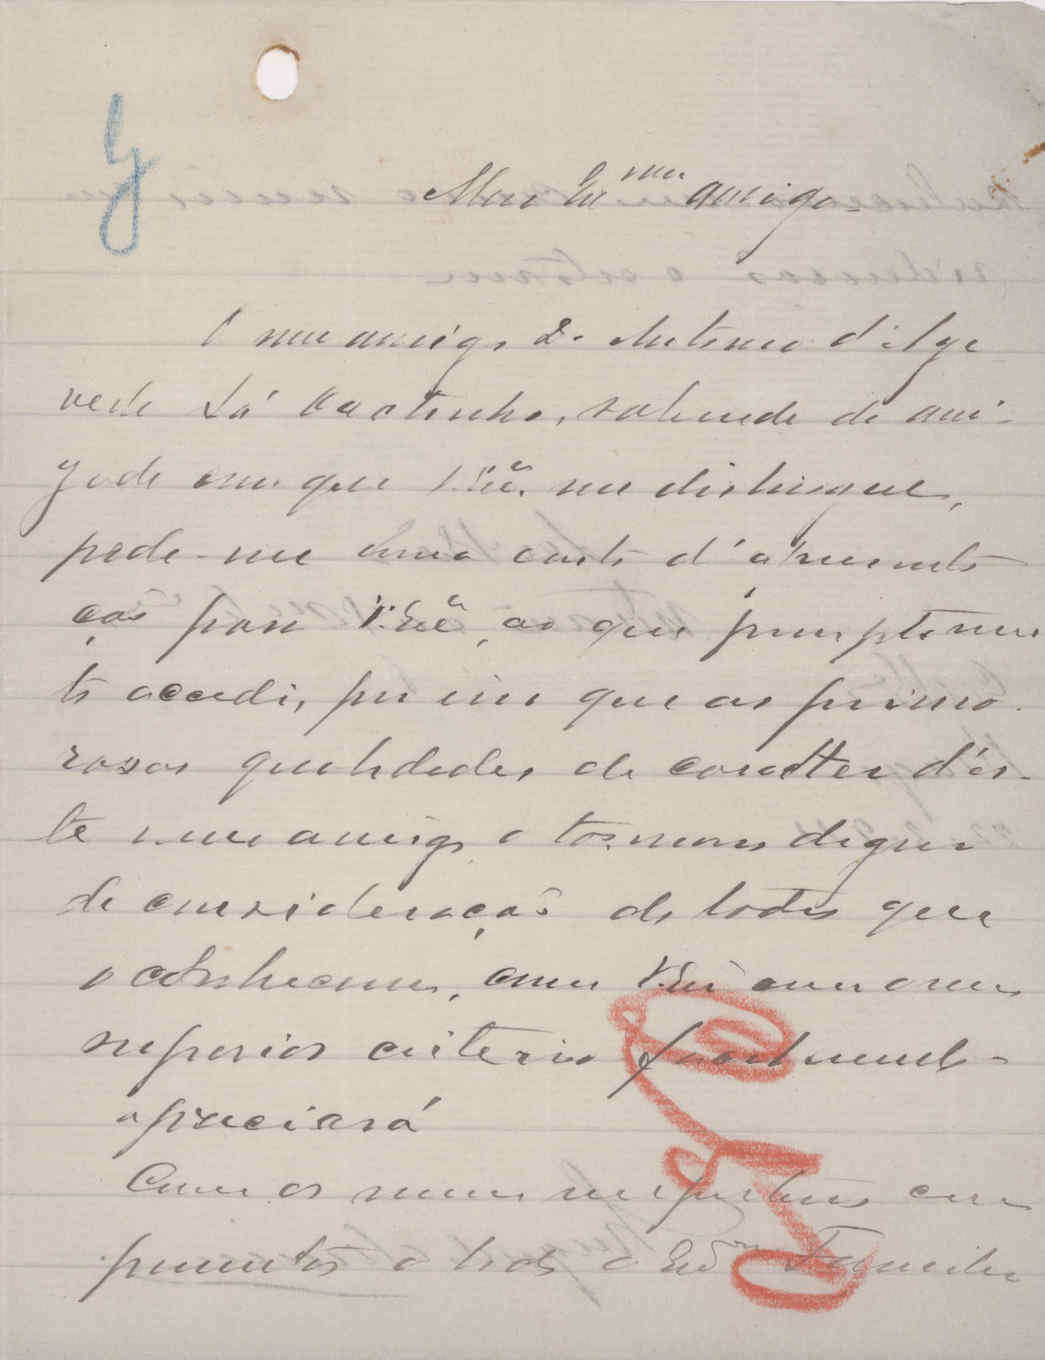 Meu Ex.mo amigo
O meu amigo Dr. Antonio d'Aze
vedo Sá Coutinho, sabendo da ami-
zade com que V. Exa. me distingue,
pede-me uma carta d'apresenta
ção para V. Exa, ao que promptamen
te accedi, por isso que as primo-
rosas qualidades de caracter d'es-
te meu amigo o tornam digno
de consideração de todos que
o conhecem, como V. Exa com o seu
superior criterio facilmente
apreciará
Com os meus respeitosos cum
primentos a toda a Exma Familia